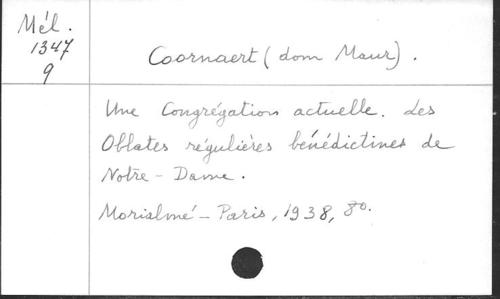 Mél.
1347
9
Coornaert (dom Maur).
Une Congrégation actuelle. Les
Oblates régulières bénédictines de
Notre-Dame.
Morialmé - Paris, 1938, 8o.